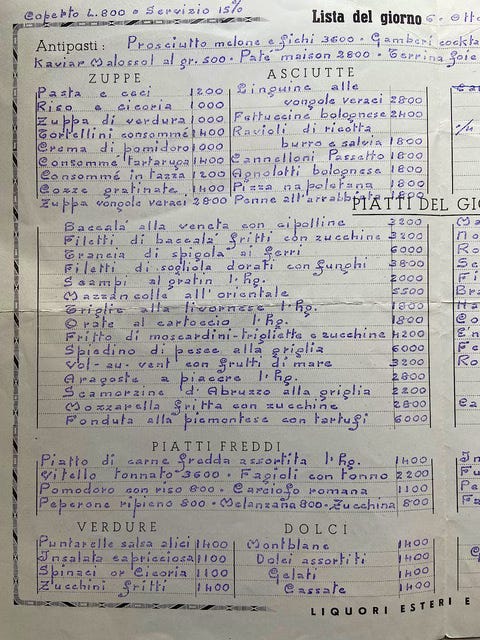 Coperto L.800 • Servizio 15%
Lista del giorno 6. Otto
Antipasti: Prosciutto melone e fichi 3600 • Gamberi cockta
Kaviar Malossol al gr. 500 • Paté maison 2800 • Terrina foie
ZUPPE
Pasta e ceci 1200
Riso e cicoria 1000
Zuppa di verdura 1000
Tortellini consommé 1400
Crema di pomidoro 1000
Consommé tartaruga 1400
Consommé in tazza 1200
Cozze gratinate 1400
Zuppa vongole veraci 2800
ASCIUTTE
Linguine alle
vongole veraci 2800
Fettuccine bolognese 2400
Ravioli di ricotta
burro e salvia 1800
Cannelloni Passetto 1800
Agnolotti bolognese 1800
Pizza napoletana 1800
Penne all'arrabbiata 1800
PIATTI DEL GIO
Baccalà alla veneta con cipolline 3200
Filetti di baccalà fritti con zucchine 3200
Trancia di spigola ai ferri 6000
Filetti di sogliola dorati con funghi 3800
Scampi al gratin l'hg. 2000
Mazzancolle all'orientale 5500
Triglie alla livornese l'hg. 1800
Orate al cartoccio l'hg. 1800
Fritto di moscardini-trigliette e zucchine 4200
Spiedino di pesce alla griglia 6000
Vol-au-vent con frutti di mare 3200
Aragoste a piacere l'hg. 2800
Scamorzine d'Abruzzo alla griglia 2200
Mozzarella fritta con zucchine 2800
Fonduta alla piemontese con tartufi 6000
PIATTI FREDDI
Piatto di carne fredda assortita l'hg. 1400
Vitello tonnato 3600 • Fagioli con tonno 2200
Pomodoro con riso 800 • Carciofo romana 1100
Peperone ripieno 500 • Melanzana 800 • Zucchina 800
VERDURE
Puntarelle salsa alici 1400
Insalata capricciosa 1100
Spinaci or Cicoria 1100
Zucchini fritti 1400
DOLCI
Montblanc 1400
Dolci assortiti 1400
Gelati 1400
Cassate 1400
LIQUORI ESTERI E